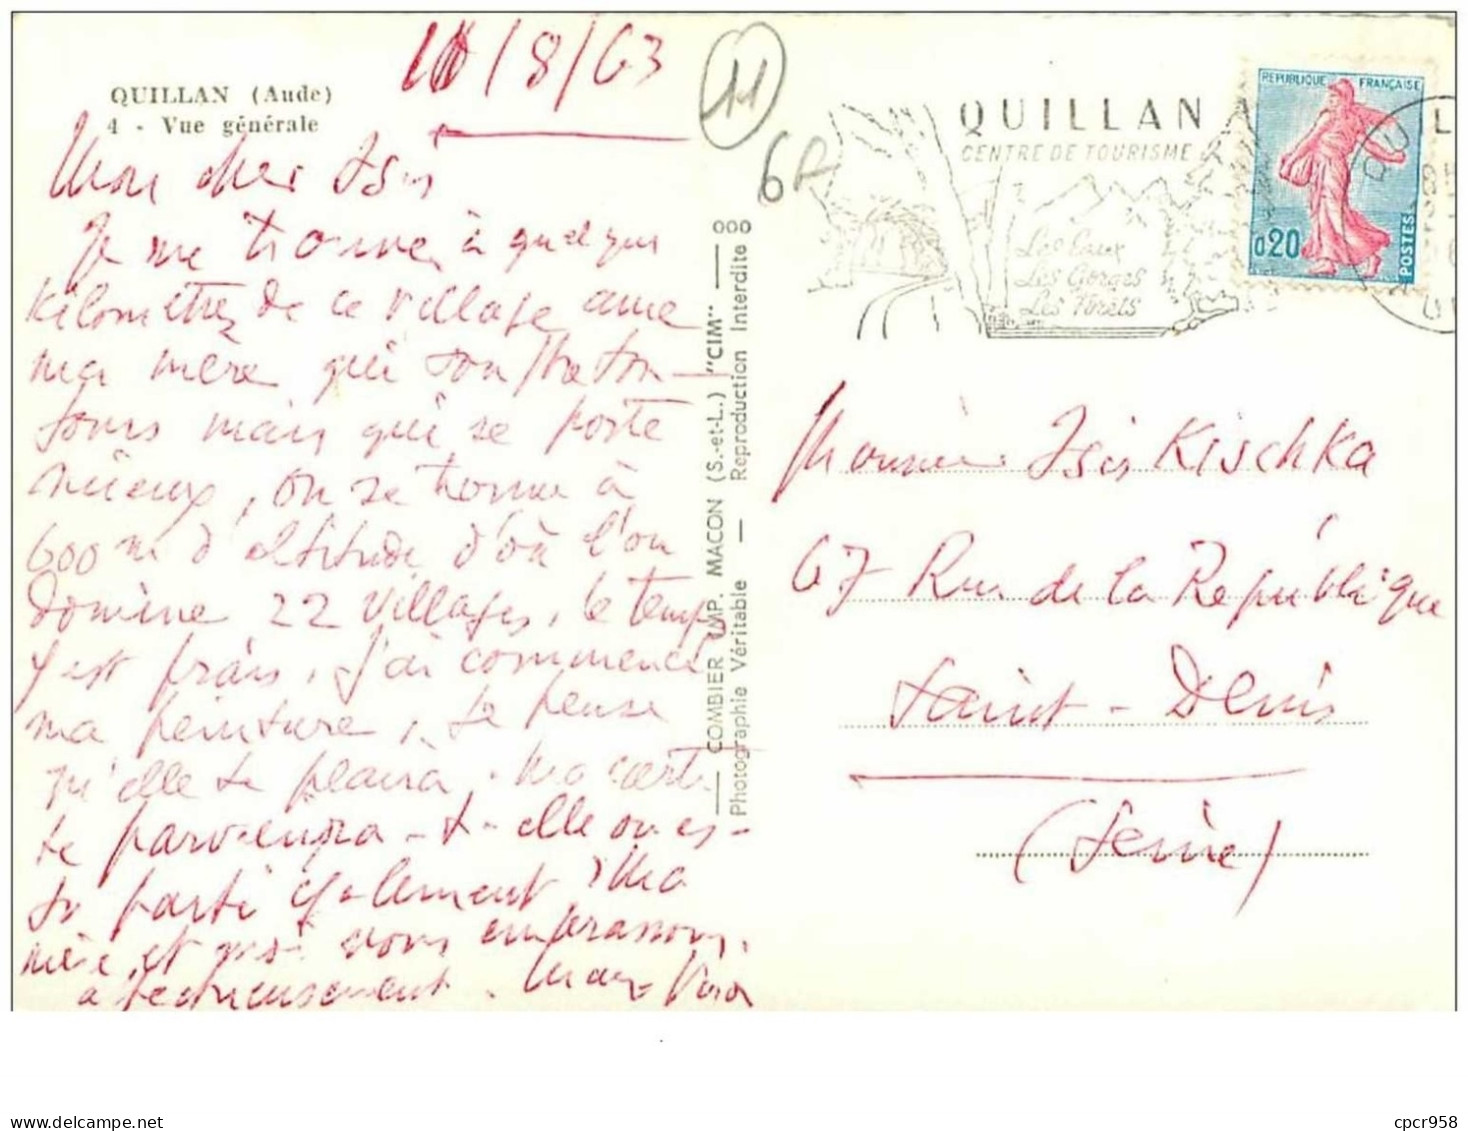 QUILLAN (Aude)
4 - Vue générale
/8/63
11
6A
Mon cher Isis
Je me trouve à quelques
kilomètres de ce village avec
ma mère qui souffre tou-
jours mais qui se porte
mieux, on se trouve à
600 m d'altitude d'où l'on
domine 22 villages, le temps
y est frais, j'ai commencé
ma peinture, je pense
qu'elle te plaira. Ma carte
te parviendra-t-elle ou es-
tu parti également ? Ma
mère et moi vous embrassons
affectueusement.
COMBIER IMP. MACON (S.-et-L.) "CIM"
000
Photographie Véritable — Reproduction Interdite
QUILLAN
CENTRE DE TOURISME
Les Eaux
Les Gorges
Les Forêts
REPUBLIQUE FRANÇAISE
0,20
POSTES
Monsieur Isis Kischka
67 Rue de la République
Saint-Denis
(Seine)
cpcr958